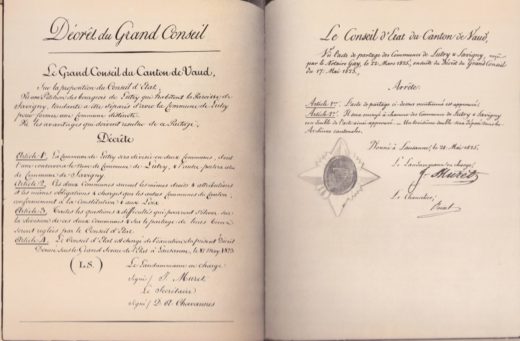 Décrêt du Grand Conseil
Le Grand Conseil du Canton de Vaud,
Sur la proposition du Conseil d'Etat,
Vu une Pétition des bourgeois de Lutry qui habitent la Paroisse de
Savigny, tendante à être séparés d'avec la Commune de Lutry
pour former une Commune distincte.
Vu les avantages qui doivent résulter de ce Partage.
Décrète
Article 1. La Commune de Lutry sera divisée en deux Communes, dont
l'une conservera le nom de Commune de Lutry, & l'autre portera celui
de Commune de Savigny.
Article 2. Ces deux Communes auront les mêmes droits & attributions
& les mêmes obligations & charges que les autres Communes du Canton,
conformément à la Constitution & aux Loix
Article 3. Toutes les questions & difficultés qui pourront s'élever sur
la division de ces deux Communes & sur le partage de leurs biens
seront réglées par le Conseil d'Etat.
Article 4. Le Conseil d'Etat est chargé de l'exécution du présent Décrêt
Donné sous le Grand Sceau de l'Etat à Lausanne, le May 1823
(L.S.)
Le Landammann en charge
Signé / J. Muret
Le Secrétaire
Signé / D. A. Chavannes
Le Conseil d'Etat du Canton de Vaud,
Vu l'acte de partage des Communes de Lutry & Savigny, reçu
par le Notaire Gay, le 22 Mars 1825, ensuite du Décret du Grand Conseil
du 17 Mai 1823,
Arrête:
Article 1er L'acte de partage ci-dessus mentionné est approuvé.
Article 2e Il sera envoyé à chacune des Communes de Lutry & Savigny
un double de l'acte ainsi approuvé. Le troisième double sera déposé aux
Archives cantonales.
Donné à Lausanne, le 21 Mai 1825.
Le Landammann en charge,
J. Muret
Le Chancelier,